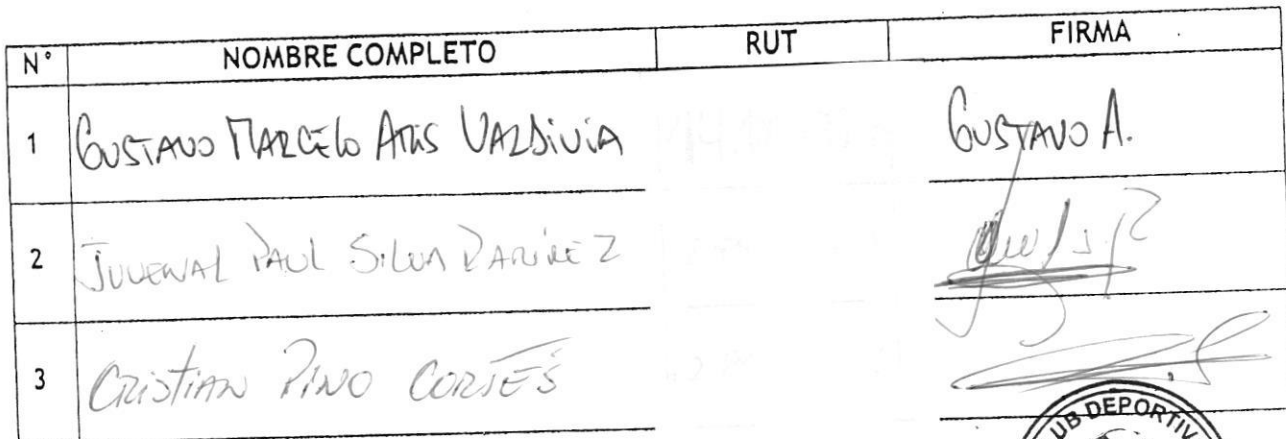 N° NOMBRE COMPLETO RUT FIRMA
1 GUSTAVO MARCELO VALDIVIA GUSTAVO A.
2 JUVENAL PAUL SILVA RAMIREZ
3 CRISTIAN PINO CORTÉS
UB DEPORTIV